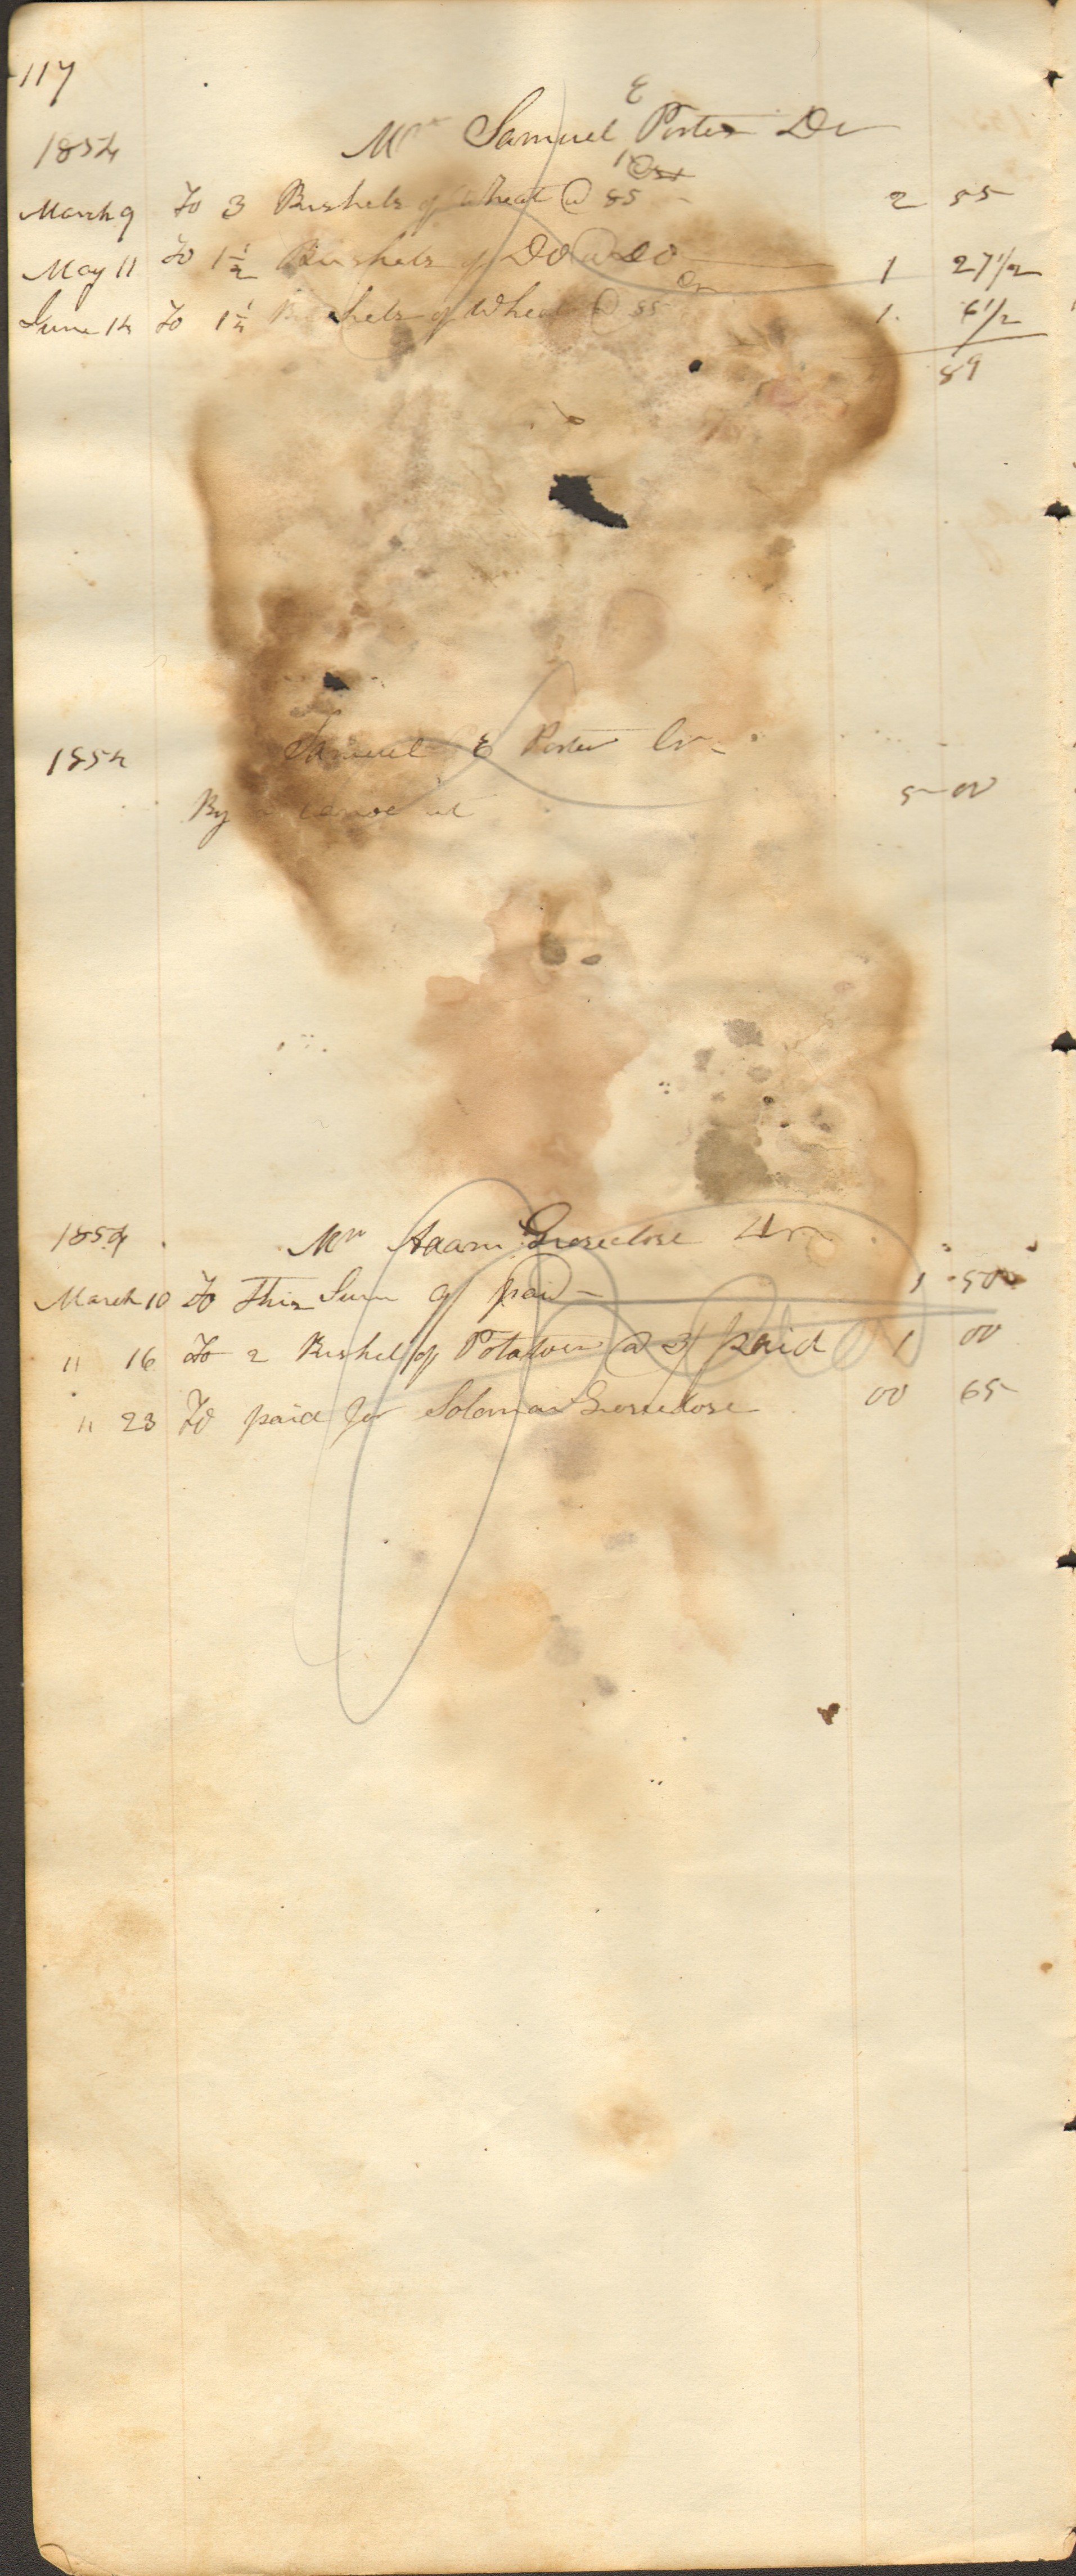 117
1854 Mr Samuel E Porter Dr
March 9 To 3 Bushels of Wheat @ 85 2 55
May 11 To 1 1/2 Bushels of Do @ Do 1 27 1/2
June 14 To 1 1/4 Bushels of Wheat @ 85 1. 6 1/2
89
1854 Samuel E Porter Cr
By 5 00
1854 Mr Adam Groseclose Dr
March 10 To This Sum of paid 1 50
" 16 To 2 Bushel of Potatoes @ 3/ paid 1 00
" 23 To paid for Soloman Groseclose 00 65